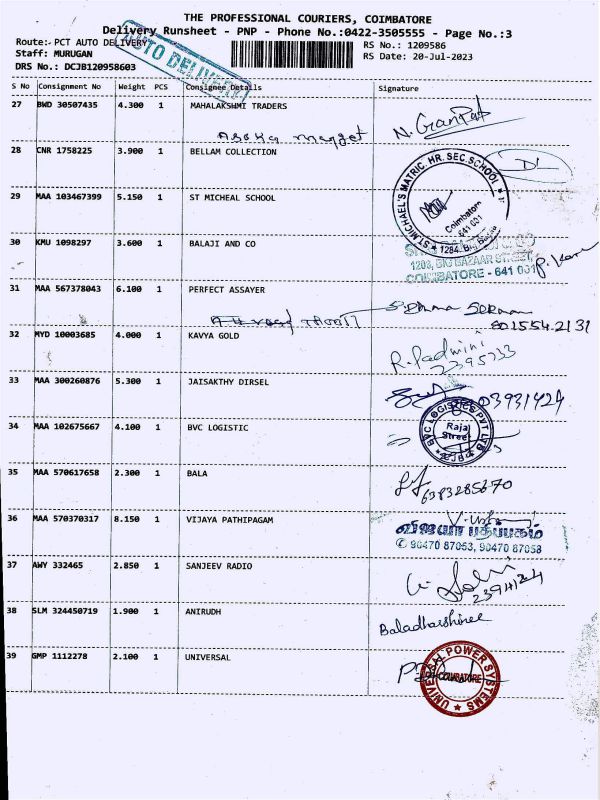 THE PROFESSIONAL COURIERS, COIMBATORE
Delivery Runsheet - PNP - Phone No.:0422-3505555 - Page No.:3
Route:- PCT AUTO DELIVERY
AUTO DELIVERY
RS No.: 1209586
Staff: MURUGAN
RS Date: 20-Jul-2023
DRS No.: DCJB120958603
S No Consignment No Weight PCS Consignee Details Signature
27 BWD 30507435 4.300 1 MAHALAKSHMI TRADERS
28 CNR 1758225 3.900 1 BELLAM COLLECTION
29 MAA 103467399 5.150 1 ST MICHEAL SCHOOL
ST.MICHAEL'S MATRIC. HR. SEC. SCHOOL
Coimbatore
641 001
30 KMU 1098297 3.600 1 BALAJI AND CO
1203, BIG BAZAAR STREET,
COIMBATORE - 641 001
31 MAA 567378043 6.100 1 PERFECT ASSAYER
32 MYD 10003685 4.000 1 KAVYA GOLD
R. Padmini
2395733
33 MAA 300260876 5.300 1 JAISAKTHY DIRSEL
03931424
34 MAA 102675667 4.100 1 BVC LOGISTIC
BVC LOGISTICS PVT LTD
Raja
Street
35 MAA 570617658 2.300 1 BALA
36 MAA 570370317 8.150 1 VIJAYA PATHIPAGAM
விஜயா பதிப்பகம்
✆ 90470 87053, 90470 87058
37 AWY 332465 2.850 1 SANJEEV RADIO
38 SLM 324450719 1.900 1 ANIRUDH
Baladharshinee
39 GMP 1112278 2.100 1 UNIVERSAL
UNIVERSAL POWER SYSTEMS
COIMBATORE